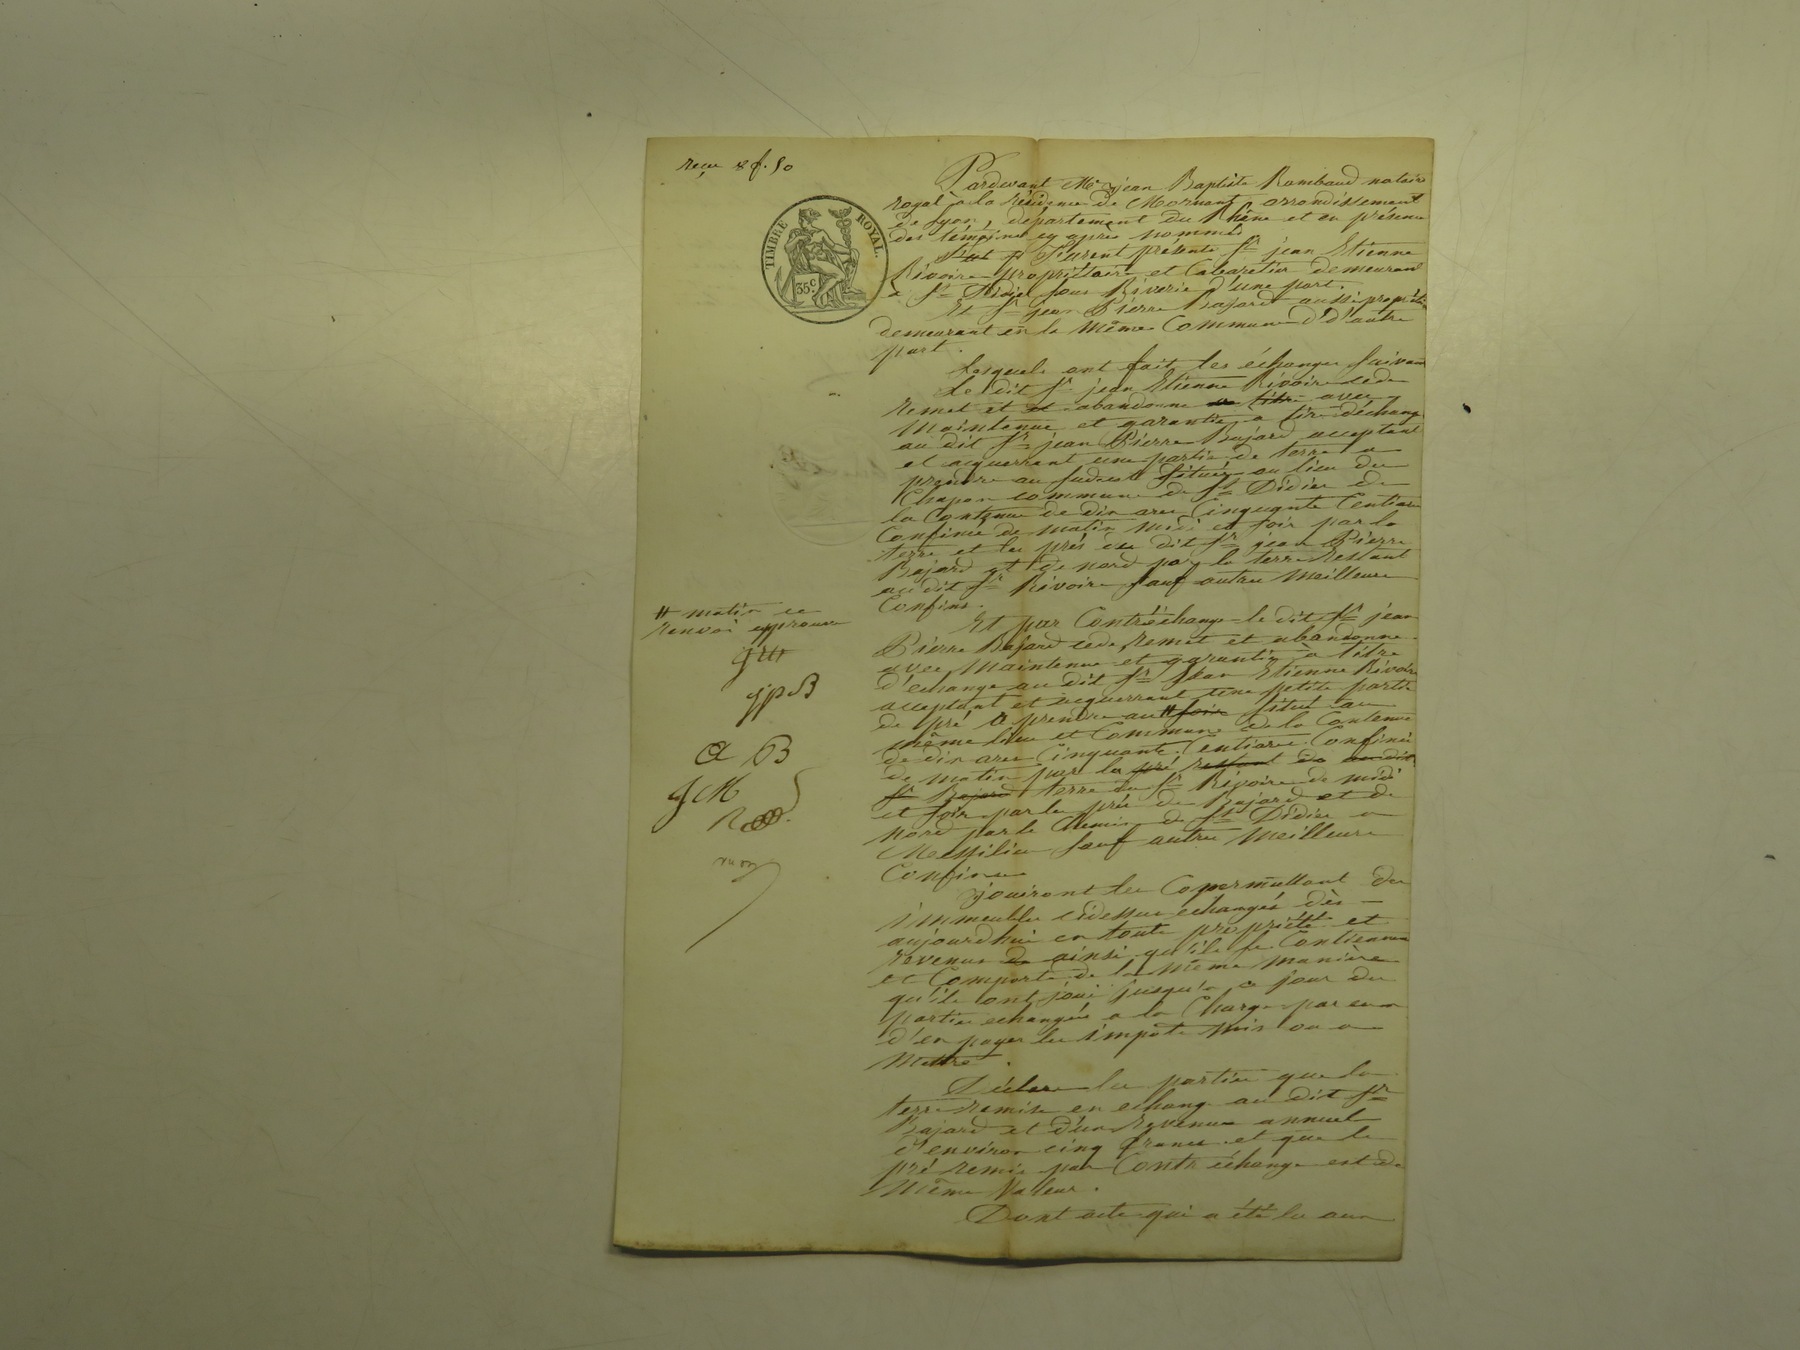 reçu 2 f. 50
TIMBRE ROYAL.
35 c.
Pardevant Me jean Baptiste Rambaud notaire
royal à la résidence de Mornant, arrondissement
de Lyon, département du Rhône et en présence
des témoins cy après nommés
furent présents Sr jean Etienne
Rivoire propriétaire et Cabaretier demeurant
à St Didier sous Riverie d'une part.
Et Sr jean Pierre Bajard aussi propriétaire
demeurant en la même Commune d'autre
part.
Lesquels ont fait les échanges suivants
Le dit Sr jean Etienne Rivoire cede
remet et abandonne avec
Maintenue et garantie a titre d'échange
au dit Sr jean Pierre Bajard acceptant
et acquerrant une partie de terre a
prendre au située au lieu du
Chapon commune de St Didier de
la Contenue de dix ares Cinquante Centiares
Confinée de matin midi et soir par la
terre et les prés du dit Sr jean Pierre
Bajard et de nord par la terre restant
au dit Sr Rivoire sauf autres meilleurs
Confins.
# matin ce
renvoi approuvé
Et par Contréchange le dit Sr jean
Pierre Bajard cede, remet et abandonne
avec Maintenue et garantie à titre
d'echange au dit Sr jean Etienne Rivoire
acceptant et acquerrant une petite partie
de pré a prendre au # soir situé au
même lieu et Commune de la Contenue
de dix ares Cinquante Centiares Confinée
de matin par la pré restant de au dit
Sr Bajard terre du Sr Rivoire de midi
et soir par le pré de Bajard et de
nord par le Chemin de St Didier a
Messilieu sauf autres Meilleurs
Confins
jpB
a B
J M
jouiront les Copermuttant des
immeubles cidessus echangés dès
aujourdhui en toute propriété et
revenus de ainsi qu'ils se Contiennent
et Comporte de la même manière
qu'ils ont joui jusqu'a ce jour des
parties echangées a la Charge par eux
d'en payer les impots mis ou a
Mettre.
Déclare les parties que la
terre remise en echange au dit Sr
Bajard et d'un Revenu annuel
d'environ cinq francs et que le
pré remis par Contréchange est de
Même Valeur.
Dont acte qui a été lu aux